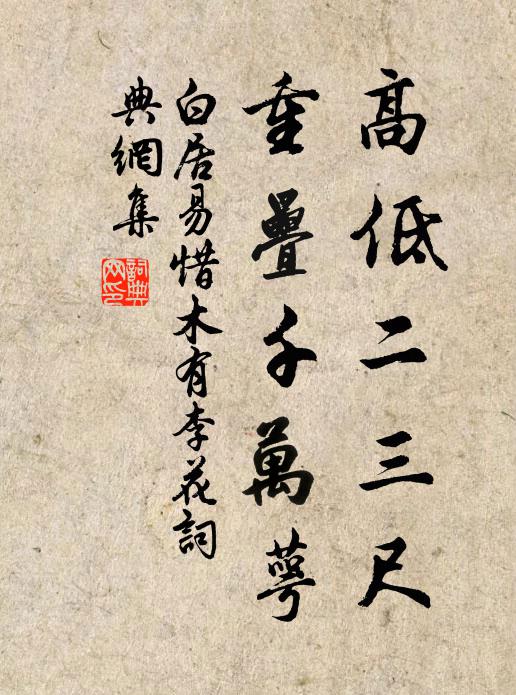 高低二三尺
重疊千萬萼
白居易惜木有李花詞
典網集
詞典網印